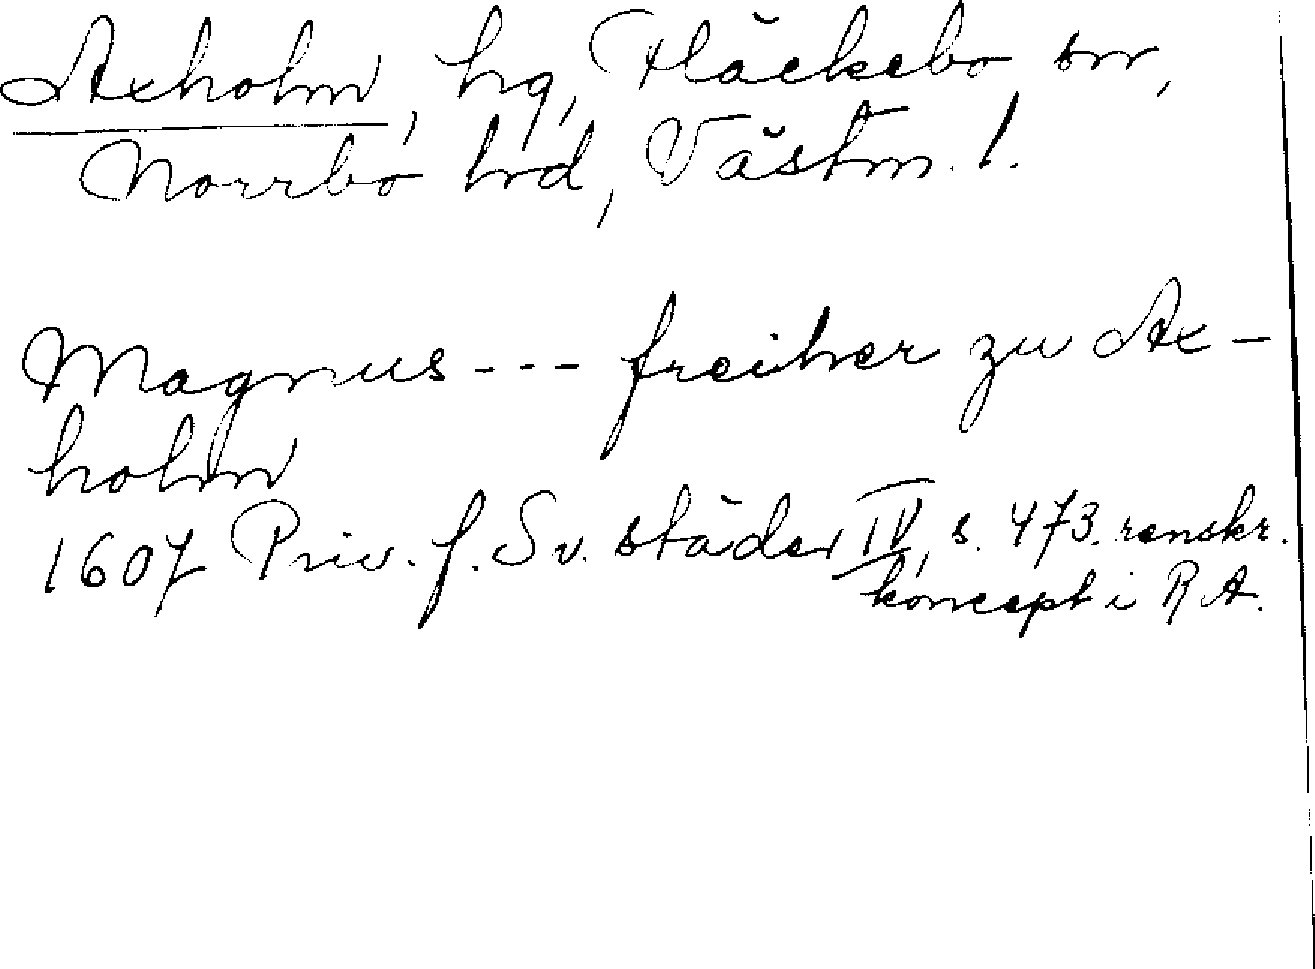 Axholm, hg, Fläckebo sn,
Norrbo hrd, Västm. l.
Magnus --- freiherr zu Ax-
holm
1607 Priv. f. Sv. städer IV, s. 473. renskr.
koncept i R A.